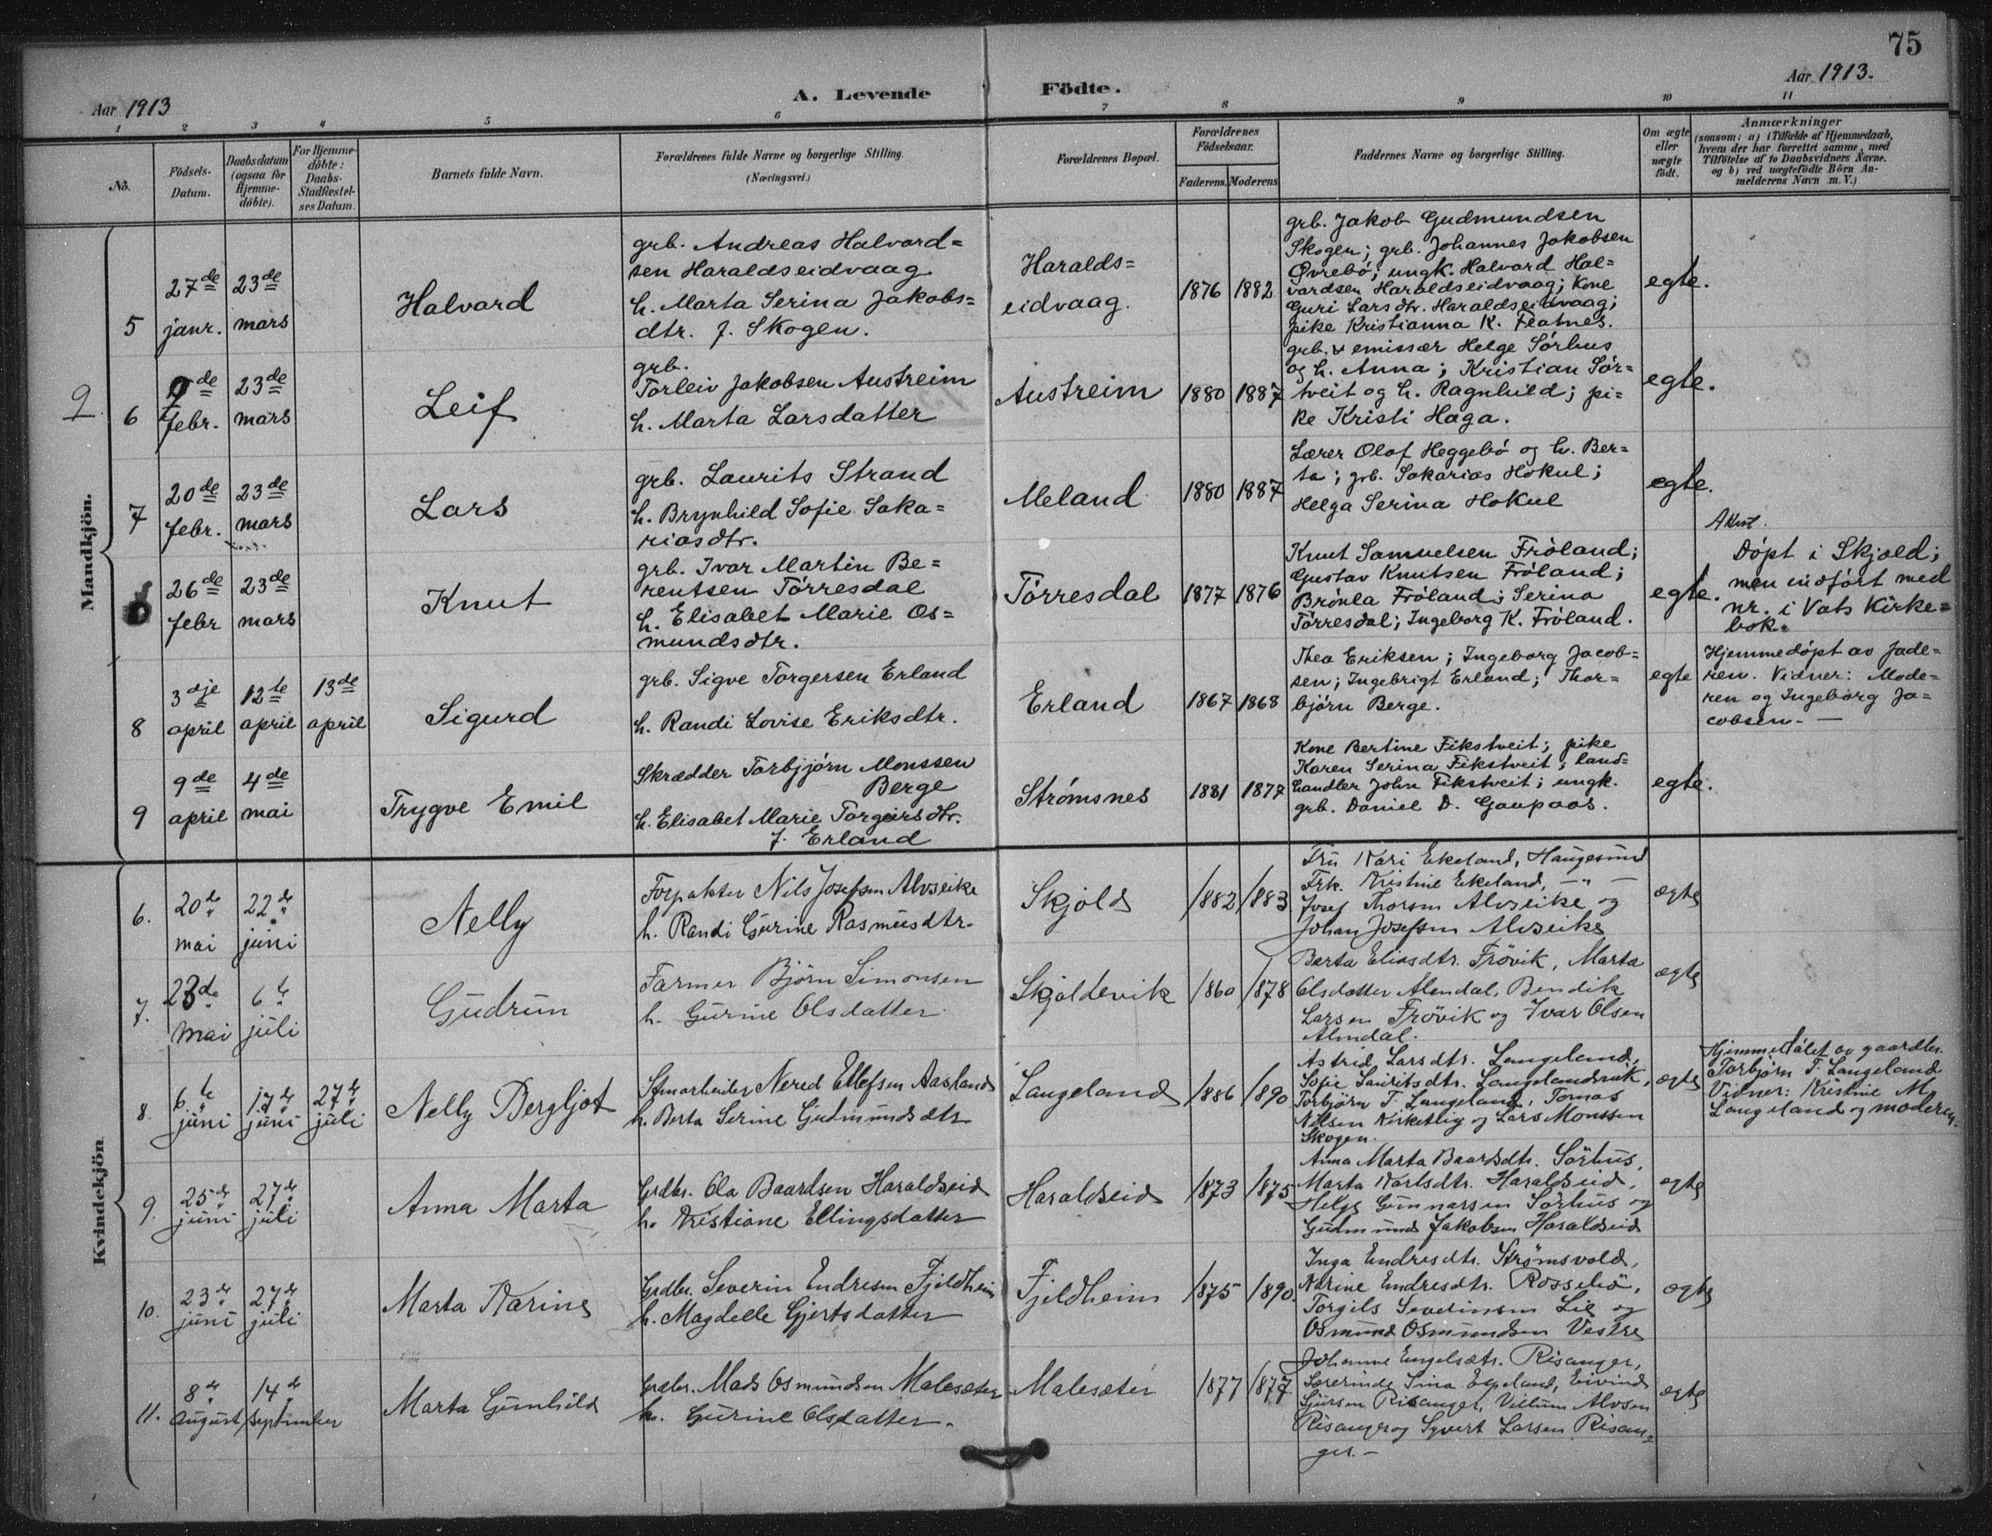 75
Aar 1913
A. Levende Födte.
Aar 1913.
1 2 3 4 5 6 7 8 9 10 11
No.
Födsels-
Datum.
Daabsdatum
(ogsaa for
Hjemme-
döbte).
For Hjemme-
döbte:
Daabs-
Stadfæstel-
ses Datum.
Barnets fulde Navn.
Forældrenes fulde Navne og borgerlige Stilling.
(Næringsvei.)
Forældrenes Bopæl.
Forældrenes
Födselsaar.
Faderens. Moderens
Faddernes Navne og borgerlige Stilling.
Om ægte
eller
uægte
födt.
Anmærkninger
(saasom: a) i Tilfælde af Hjemmedaab,
hvem der har forrettet samme, med
Tilföielse af to Daabsvidners Navne,
og b) ved uægtefödte Börn An-
melderens Navn m.V.)
Mandkjön.
5
27de
janr.
23de
mars
Halvard
grb. Andreas Halvard=
sen Haraldseidvaag
h. Marta Serina Jakobs=
dtr. f. Skogen.
Haralds=
eidvaag.
1876 1882
grb. Jakob Gudmundsen
Skogen; grb. Johannes Jakobsen
Øvrebø; ungk. Halvard Hal=
vardsen Haraldseidvaag; Kone
Guri Larsdtr. Haraldseidvaag;
pike Kristianna K. Flatnes.
egte.
2
6
9de
febr.
23de
mars
Leif
grb.
Torleiv Jakobsen Austreim
h. Marta Larsdatter
Austreim
1880 1887
grb. & emissær Helge Sørhus
og h. Anna; Kristian Sør=
tveit og h. Ragnhild; pi=
ke Kristi Haga.
egte.
7
20de
febr.
23de
mars
Lars
grb. Laurits Strand
h. Brynhild Sofie Saka=
riasdtr.
Meland
1880 1887
Lærer Olaf Heggebø og h. Ber=
ta; grb. Sakarias Hokul;
Helga Serina Hokul
egte.
26de
febr
23de
mars
Knut
grb. Ivar Martin Be=
rentsen Tørresdal
h. Elisabet Marie Os=
mundsdtr.
Tørresdal
1877 1876
Knut Samuelsen Frøland;
Gustav Knutsen Frøland;
Brønla Frøland; Serina
Tørresdal; Ingeborg K. Frøland.
egte.
Døpt i Skjold;
men indført med
nr. i Vats Kirke=
bok.
8
3dje
april
12te
april
13de
april
Sigurd
grb. Sigve Torgersen Erland
h. Randi Lovise Eriksdtr.
Erland
1867 1868
Thea Eriksen; Ingeborg Jacob=
sen; Ingebrigt Erland; Thor=
bjørn Berge.
egte
Hjemmedøpt av fade=
ren. Vidner: Mode=
ren og Ingeborg Ja=
cobsen. —
9
9de
april
4de
mai
Trygve Emil
Skrædder Torbjjørn Monssen
Berge
h. Elisabet Marie Torgeirsdtr.
f. Erland
Strømsnes
1881 1877
Kone Bertine Fikstveit; pike
Karen Serina Fikstveit; land=
handler John Fikstveit; ungk.
grb. Daniel D. Gaupaas.
egte.
Kvindekjön
6.
20de
mai
22de
juni
Nelly
Forpakter Nils Josefsen Alvseike
h. Randi Gurine Rasmusdtr.
Skjold
1882 1883
Fru Kari Ekeland, Haugesund
Frk. Kristine Ekeland, — " —
Josef Thorsen Alvseike og
Johan Josefsen Alvseike
ægte
7.
23de
mai
6te
juli
Gudrun
Farmer Bjørn Simonsen
h. Gurine Olsdatter
Skjoldevik
1860 1878
Berta Eliasdtr. Frøvik, Marta
Olsdatter Alendal, Bendik
Larsen Frøvik og Ivar Olsen
Almdal.
ægte
8.
6te
juni
17de
juni
27de
juli
Nelly Bergljot
Nered Ellefsen Aasland
h. Berta Serine Gudmundsdtr
Langeland
1886 1890
Astrid Larsdtr. Langeland,
Sofie Lauritsdtr. Langelandsvik,
Torbjørn T. Langeland, Tomas
Nilsen Kirketlig og Lars Monssen
Skogen.
ægte
Hjemmedøbt av gaardbr.
Torbjørn T. Langeland
Vidner: Kristine M.
Langeland og moderen.
9.
25de
juni
27de
juli
Anna Marta
Grdbr. Ola Baardsen Haraldseid
h. Kristiane Ellingsdatter
Haraldseid
1873 1875
Anna Marta Baardsdtr. Sørhus,
Marta Karlsdtr. Haraldseid,
Helge Gunnarsen Sørhus og
Gudmund Jakobsen Haraldseid
ægte
10.
23de
juni
27de
juli
Marta Karine
Grdbr. Severin Endresen Fjeldheim
h. Magdelle Gjertsdatter
Fjeldheim
1875 1890.
Inga Endresdtr. Strømsvold,
Karine Endresdtr. Rossebø,
Torgils Severinsen Lie og
Osmund Osmundsen Vestre
ægte
11.
8de
august
14de
september
Marta Gunhild
Grdbr. Mads Osmundsen Malesæter
h. Gurine Olsdatter.
Malesæter
1877 1877
Johanne Engelsdtr. Risanger,
Lærerinde Sina Espeland, Eivind
Sjursen Risanger, Villum Alvsen
Risanger og Syvert Larsen Risan=
ger. —
ægte